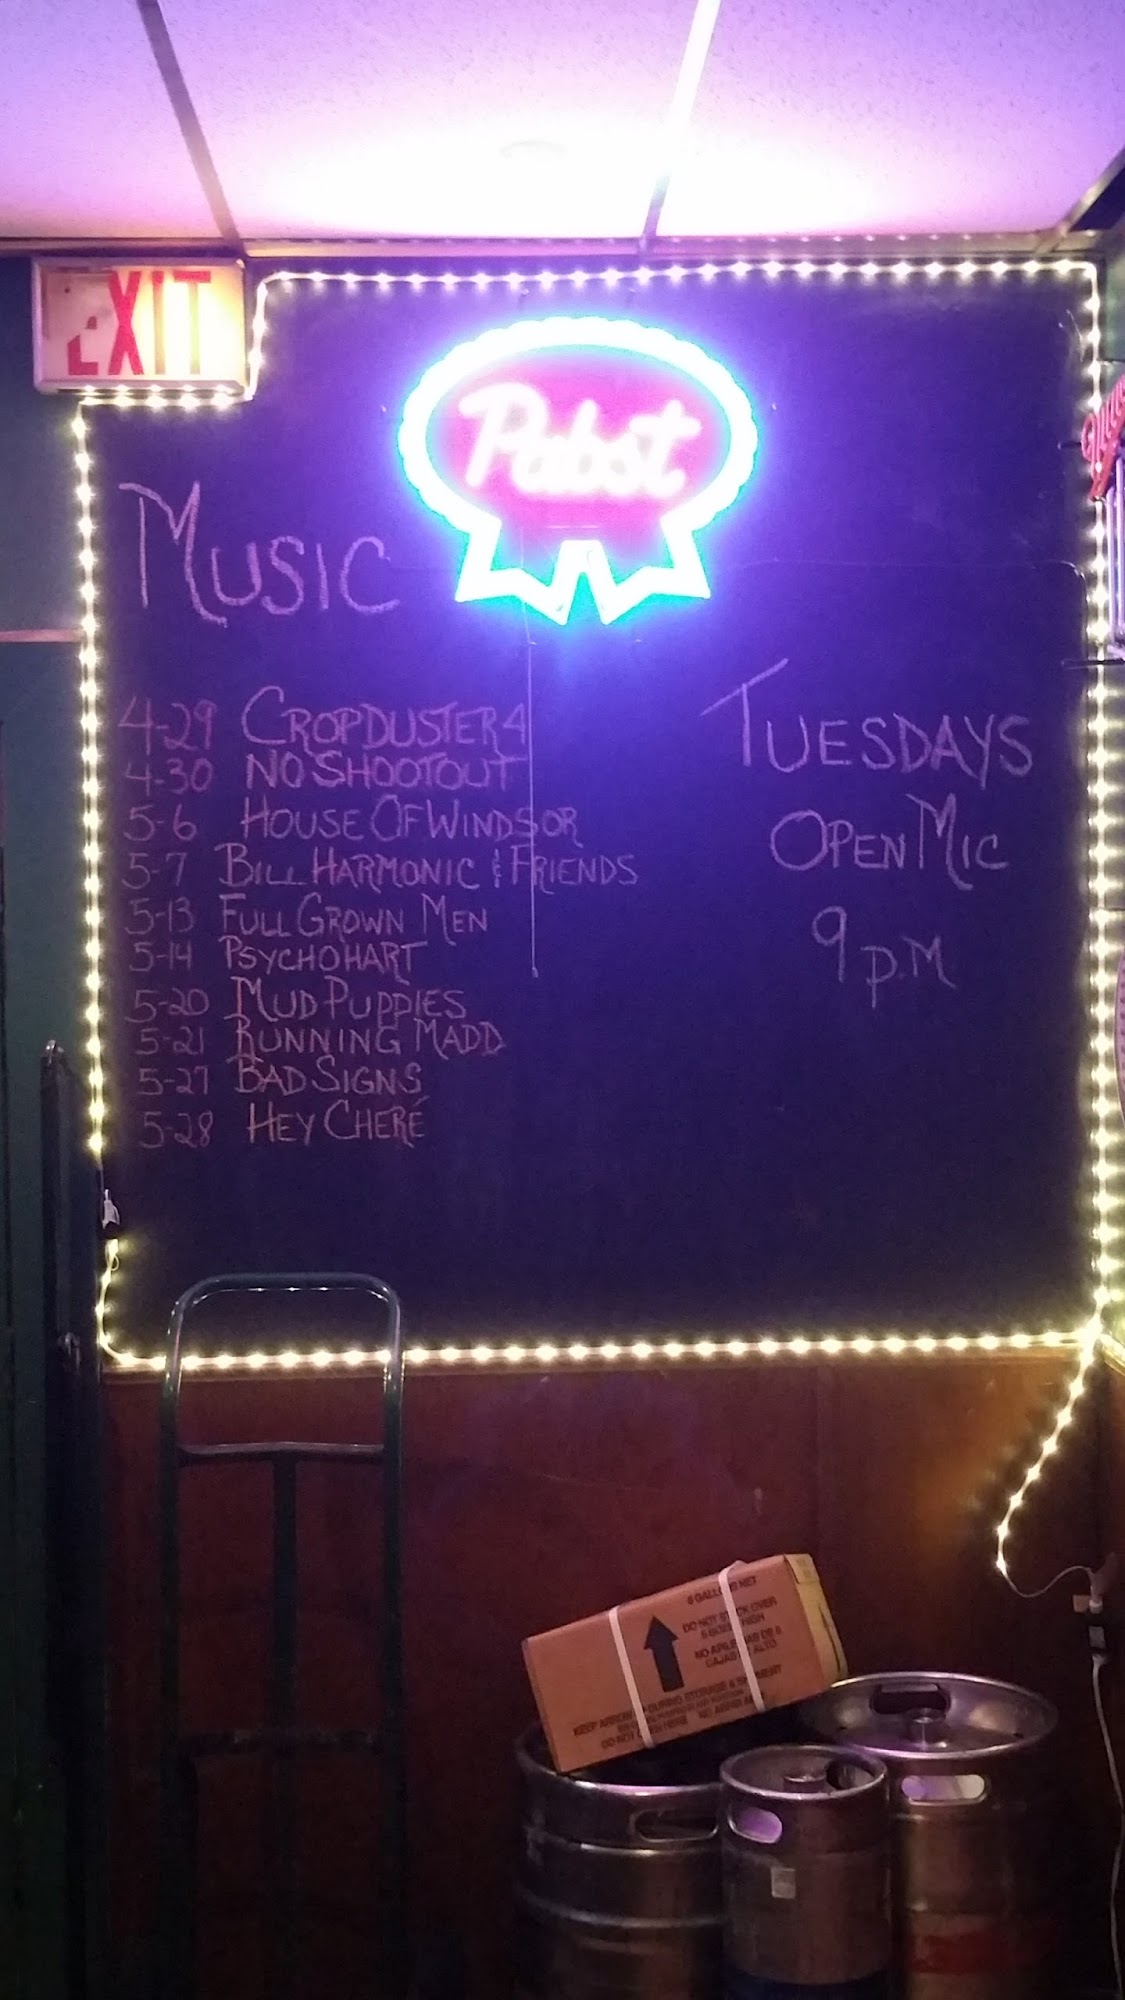 EXIT
Pabst
MUSIC
4-29 CROPDUSTER4
4-30 NO SHOOTOUT
5-6 HOUSE OF WINDSOR
5-7 BILL HARMONIC & FRIENDS
5-13 FULL GROWN MEN
5-14 PSYCHOHART
5-20 MUD PUPPIES
5-21 RUNNING MADD
5-27 BAD SIGNS
5-28 HEY CHERÉ
TUESDAYS
OPEN MIC
9 P.M
5 GALLONS NET
DO NOT STACK OVER
5 BOXES HIGH
NO APILE MAS DE 5
CAJAS DE ALTO
DURING STORAGE & SHIPMENT